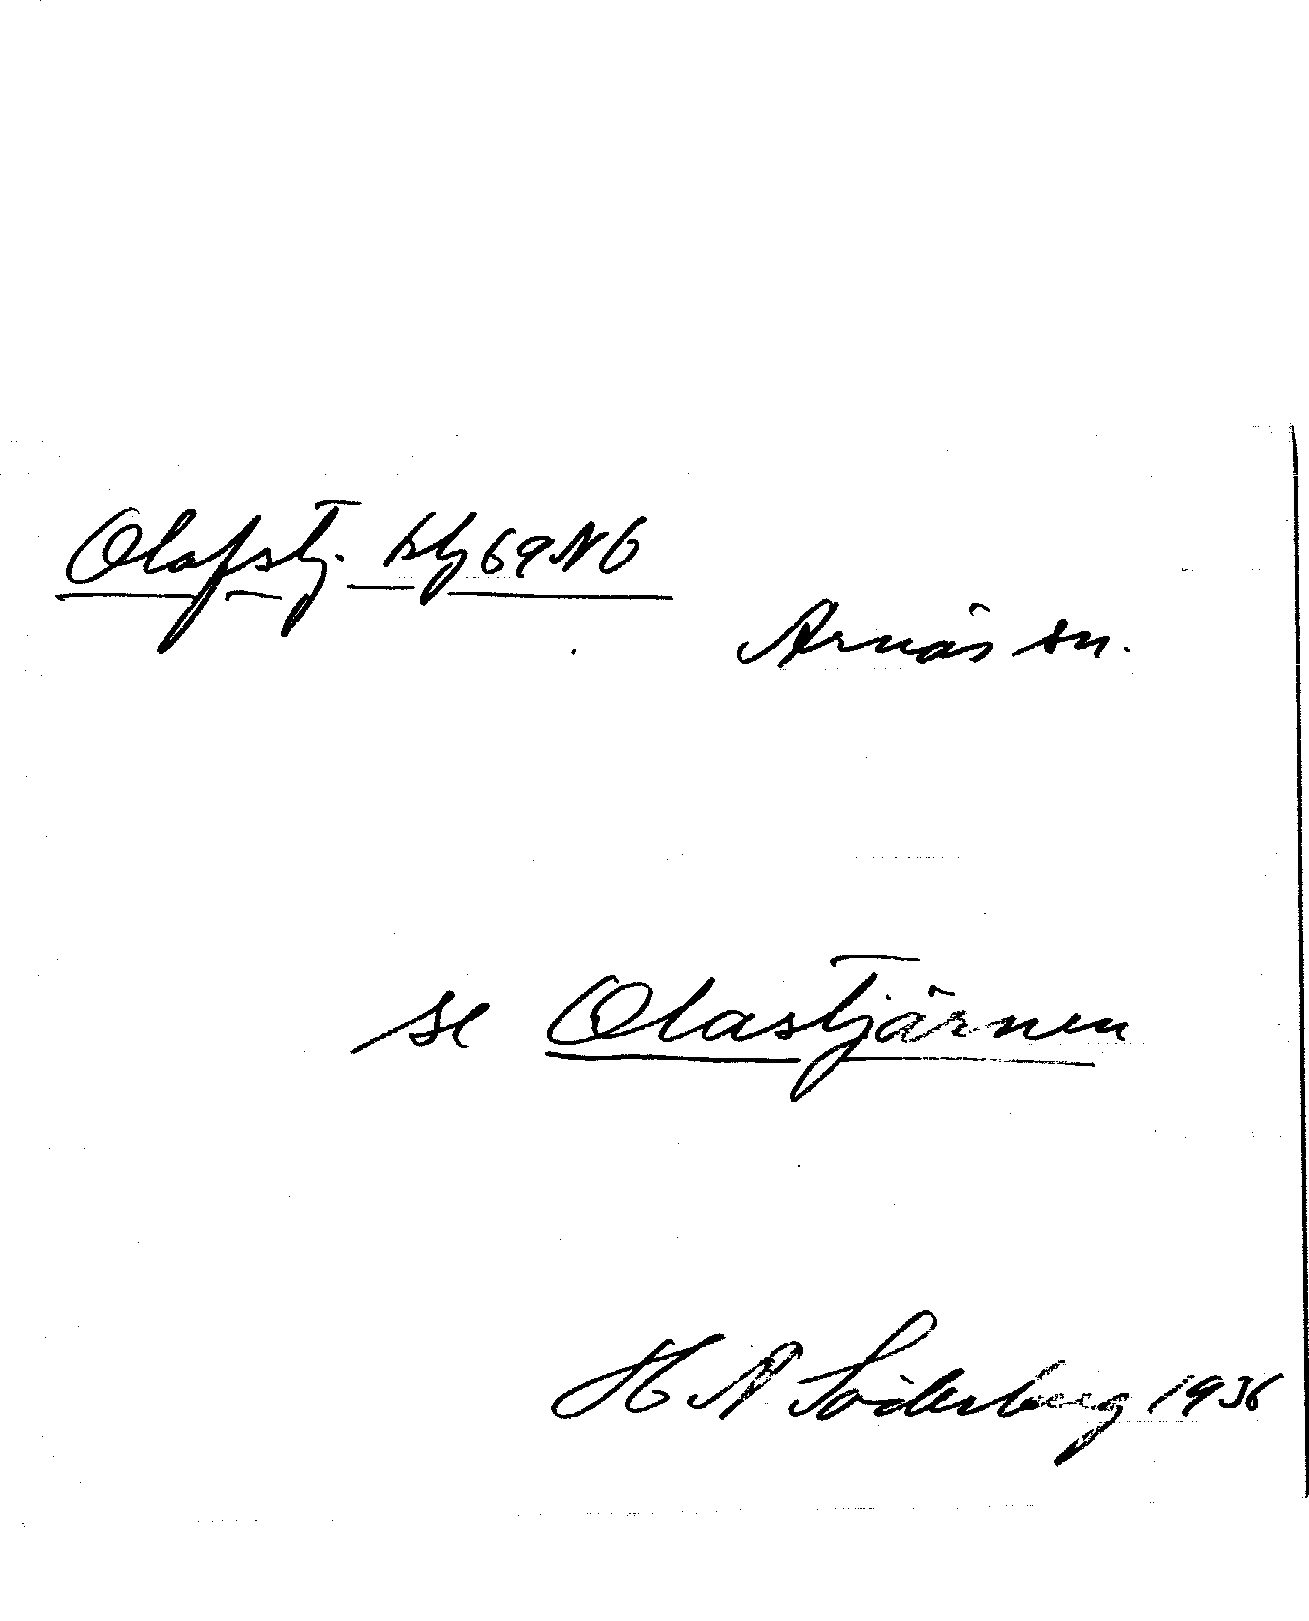 Olafstj. blj 69 N6
Arnäs sn.
se Olastjärnen
H A Söderberg 1936